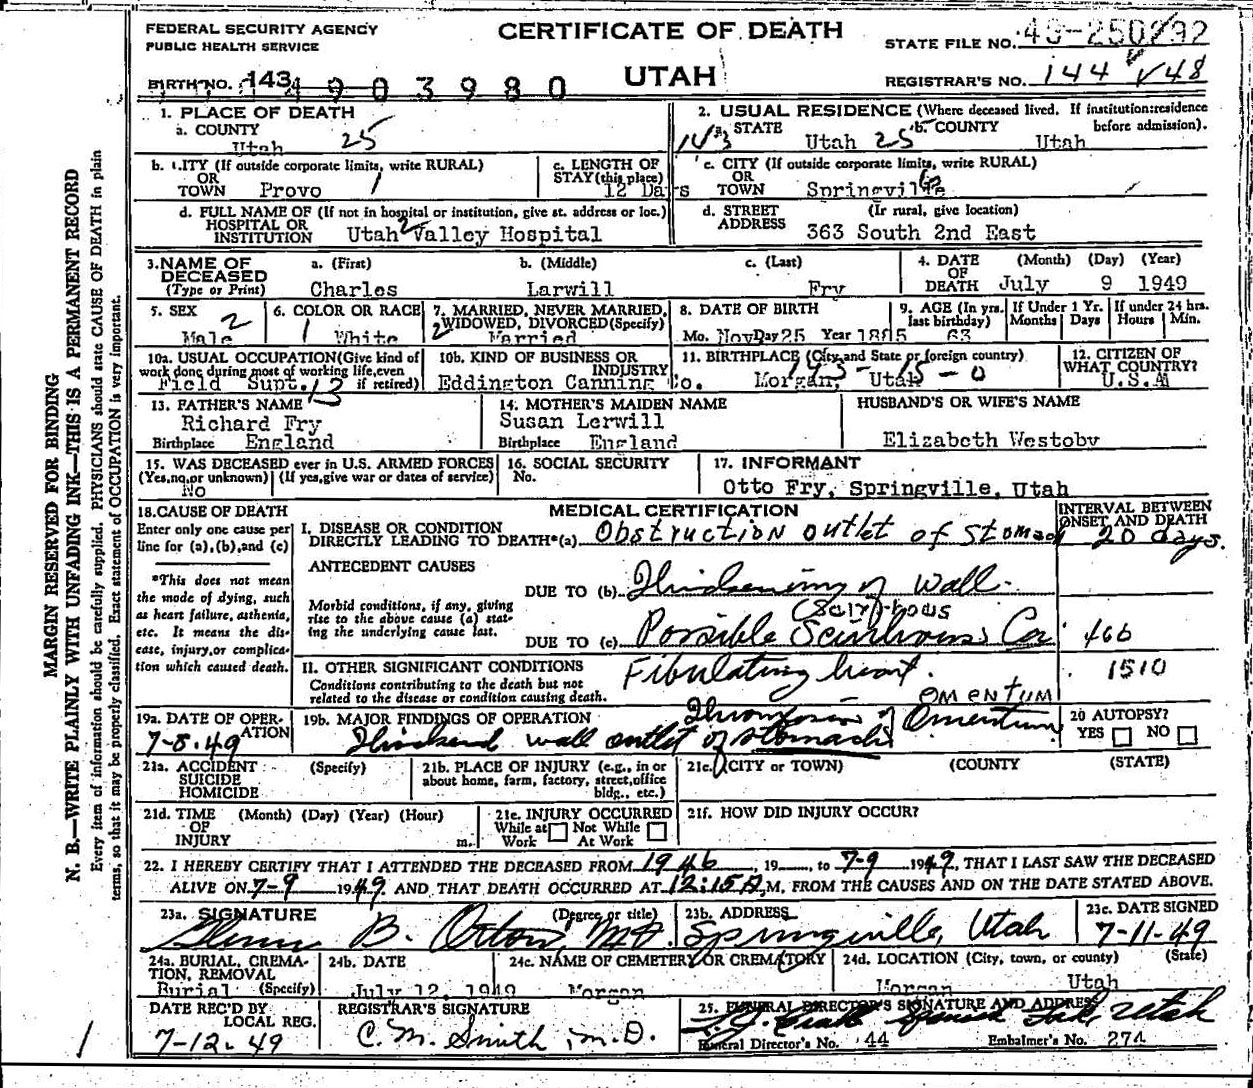 FEDERAL SECURITY AGENCY
PUBLIC HEALTH SERVICE
CERTIFICATE OF DEATH
STATE FILE NO.
BIRTH NO. 143
UTAH
REGISTRAR'S NO. 144 48
1. PLACE OF DEATH
a. COUNTY
Utah 25
2. USUAL RESIDENCE (Where deceased lived. If institution:residence before admission).
143 a. STATE Utah 25 b. COUNTY Utah
b. CITY (If outside corporate limits, write RURAL)
OR
TOWN Provo 1
c. LENGTH OF STAY (this place)
12 Days
c. CITY (If outside corporate limits, write RURAL)
OR
TOWN Springville
d. FULL NAME OF (If not in hospital or institution, give st. address or loc.)
HOSPITAL OR
INSTITUTION Utah Valley Hospital
2
d. STREET ADDRESS (If rural, give location)
363 South 2nd East
3. NAME OF DECEASED (Type or Print)
a. (First) b. (Middle) c. (Last)
Charles Larwill Fry
4. DATE OF DEATH (Month) (Day) (Year)
July 9 1949
5. SEX
2
Male
6. COLOR OR RACE
1 White
7. MARRIED, NEVER MARRIED, WIDOWED, DIVORCED (Specify)
2 Married
8. DATE OF BIRTH
Mo. Nov Day 25 Year 1885
9. AGE (In yrs. last birthday)
63
If Under 1 Yr. Months Days
If under 24 hrs. Hours Min.
10a. USUAL OCCUPATION (Give kind of work done during most of working life, even if retired)
Field Supt.
10b. KIND OF BUSINESS OR INDUSTRY
Eddington Canning Co.
11. BIRTHPLACE (City and State or foreign country)
Morgan, Utah
12. CITIZEN OF WHAT COUNTRY?
U.S.A
13. FATHER'S NAME
Richard Fry
Birthplace England
14. MOTHER'S MAIDEN NAME
Susan Lerwill
Birthplace England
HUSBAND'S OR WIFE'S NAME
Elizabeth Westoby
15. WAS DECEASED ever in U.S. ARMED FORCES
(Yes, no, or unknown) (If yes, give war or dates of service)
No
16. SOCIAL SECURITY No.
17. INFORMANT
Otto Fry, Springville, Utah
18. CAUSE OF DEATH
Enter only one cause per line for (a), (b), and (c)
*This does not mean the mode of dying, such as heart failure, asthenia, etc. It means the disease, injury, or complication which caused death.
MEDICAL CERTIFICATION
INTERVAL BETWEEN ONSET AND DEATH
I. DISEASE OR CONDITION DIRECTLY LEADING TO DEATH*(a) Obstruction outlet of stomach 20 days.
ANTECEDENT CAUSES
Morbid conditions, if any, giving rise to the above cause (a) stating the underlying cause last.
DUE TO (b) Thickening of wall
(Scirrhous
DUE TO (c) Possible Scirrhous Ca
II. OTHER SIGNIFICANT CONDITIONS
Conditions contributing to the death but not related to the disease or condition causing death.
Fibulating heart. 1510
OMENTUM
19a. DATE OF OPERATION
7-8-49
19b. MAJOR FINDINGS OF OPERATION
Thrombosis of Omentum
Thickend wall outlet of stomach
20 AUTOPSY?
YES NO
21a. ACCIDENT SUICIDE HOMICIDE (Specify)
21b. PLACE OF INJURY (e.g., in or about home, farm, factory, street, office bldg., etc.)
21c. (CITY or TOWN) (COUNTY) (STATE)
21d. TIME OF INJURY (Month) (Day) (Year) (Hour) m.
21e. INJURY OCCURRED
While at Work Not While At Work
21f. HOW DID INJURY OCCUR?
22. I HEREBY CERTIFY THAT I ATTENDED THE DECEASED FROM 1946, 19 , to 7-9 1949, THAT I LAST SAW THE DECEASED
ALIVE ON 7-9 1949 AND THAT DEATH OCCURRED AT 12:15 A.M, FROM THE CAUSES AND ON THE DATE STATED ABOVE.
23a. SIGNATURE (Degree or title)
Glenn B. Orton, M.D.
23b. ADDRESS
Springville, Utah
23c. DATE SIGNED
7-11-49
24a. BURIAL, CREMATION, REMOVAL (Specify)
Burial
24b. DATE
July 12, 1949
24c. NAME OF CEMETERY OR CREMATORY
Morgan
24d. LOCATION (City, town, or county) (State)
Morgan Utah
DATE REC'D BY LOCAL REG.
7-12-49
REGISTRAR'S SIGNATURE
C. M. Smith, M.D.
25. FUNERAL DIRECTOR'S SIGNATURE AND ADDRESS
Utah
Funeral Director's No. 44 Embalmer's No. 274
MARGIN RESERVED FOR BINDING
N. B.—WRITE PLAINLY WITH UNFADING INK—THIS IS A PERMANENT RECORD
Every item of information should be carefully supplied. PHYSICIANS should state CAUSE OF DEATH in plain
terms, so that it may be properly classified. Exact statement of OCCUPATION is very important.